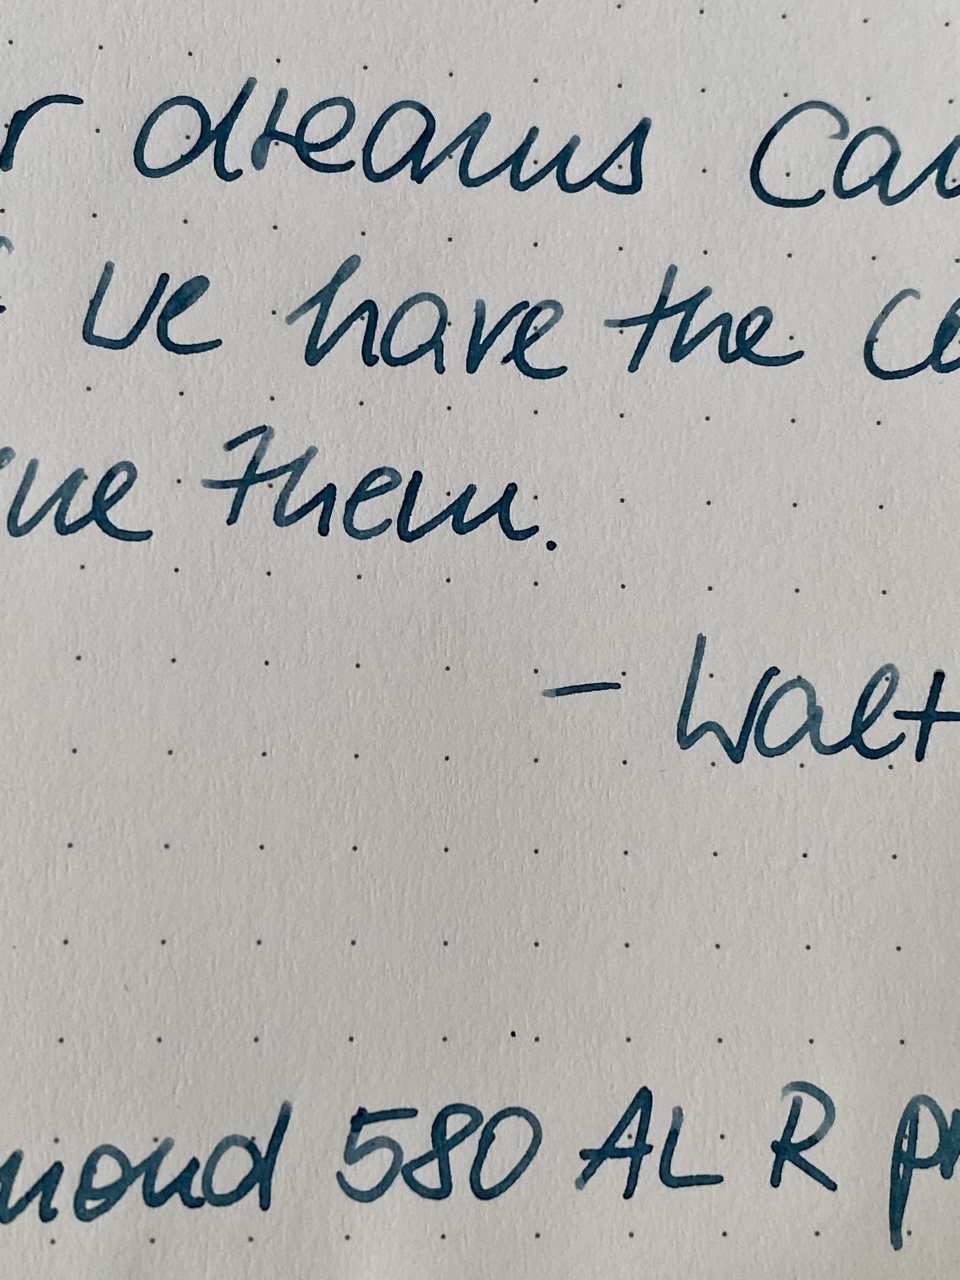 r dreams can
f we have the co
ue them.
- Walt
mond 580 AL R pr